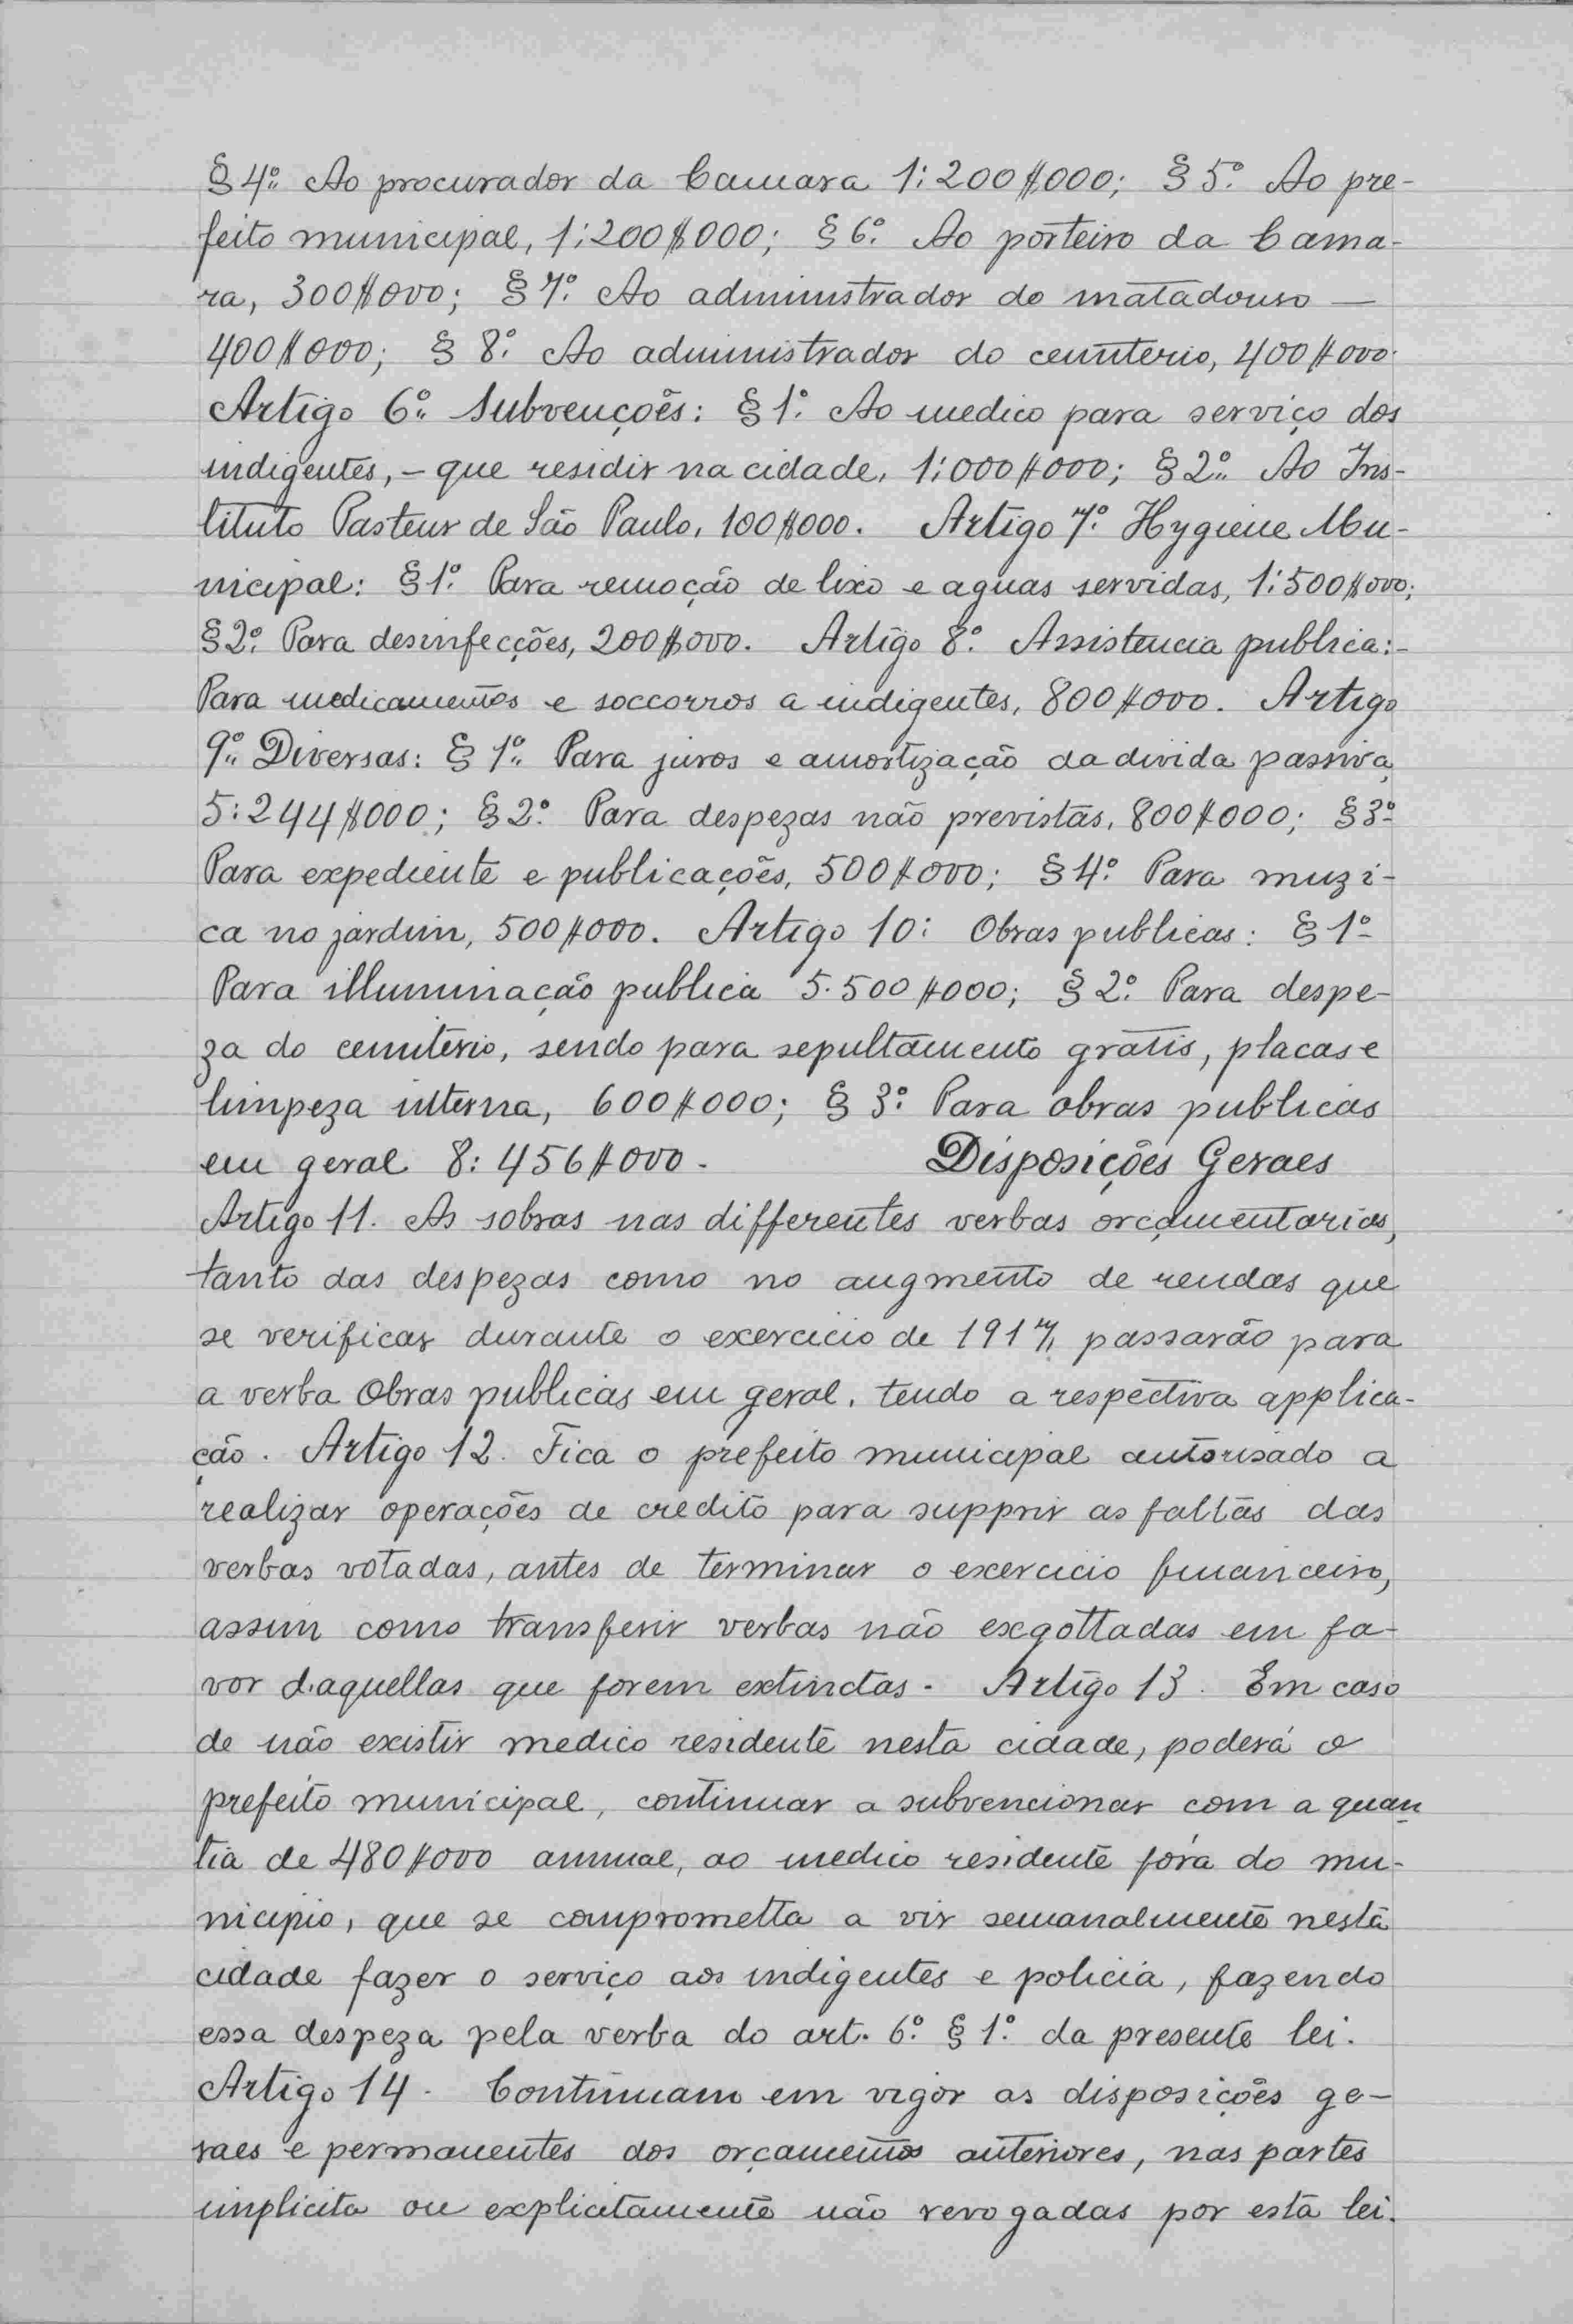 § 4º. Ao procurador da Camara 1:200$000; § 5º. Ao pre-
feito municipal, 1:200$000; § 6º. Ao porteiro da Cama-
ra, 300$000; § 7º. Ao administrador do matadouro —
400$000; § 8º. Ao administrador do cemiterio, 400$000.
Artigo 6º. Subvenções: § 1º. Ao medico para serviço dos
indigentes, - que residir na cidade, 1:000$000; § 2º. Ao Ins-
tituto Pasteur de São Paulo, 100$000. Artigo 7º. Hygiene Mu-
nicipal: § 1º. Para remoção de lixo e aguas servidas, 1:500$000;
§ 2º. Para desinfecções, 200$000. Artigo 8º. Assistencia publica:-
Para medicamentos e soccorros a indigentes, 800$000. Artigo
9º. Diversas: § 1º. Para juros e amortização da divida passiva,
5:244$000; § 2º. Para despezas não previstas, 800$000; § 3º-
Para expediente e publicações, 500$000; § 4º. Para muzi-
ca no jardim, 500$000. Artigo 10: Obras publicas: § 1º-
Para illuminação publica 5.500$000; § 2º. Para despe-
za do cemiterio, sendo para sepultamento gratis, placas e
limpeza interna, 600$000; § 3º. Para obras publicas
em geral 8:456$000. Disposições Geraes
Artigo 11. As sobras nas differentes verbas orçamentarias,
tanto das despezas como no augmento de rendas que
se verificar durante o exercicio de 1917, passarão para
a verba Obras publicas em geral, tendo a respectiva applica-
ção. Artigo 12. Fica o prefeito municipal autorisado a
realizar operações de credito para supprir as faltas das
verbas votadas, antes de terminar o exercicio financeiro,
assim como transferir verbas não exgottadas em fa-
vor d'aquellas que forem extinctas. Artigo 13. Em caso
de não existir medico residente nesta cidade, poderá o
prefeito municipal, continuar a subvencionar com a quan
tia de 480$000 annual, ao medico residente fóra do mu-
nicipio, que se comprometta a vir semanalmente nesta
cidade fazer o serviço aos indigentes e policia, fazendo
essa despeza pela verba do art. 6º. § 1º. da presente lei.
Artigo 14. Continuam em vigor as disposições ge-
raes e permanentes dos orçamentos anteriores, nas partes
implicita ou explicitamente não revogadas por esta lei.